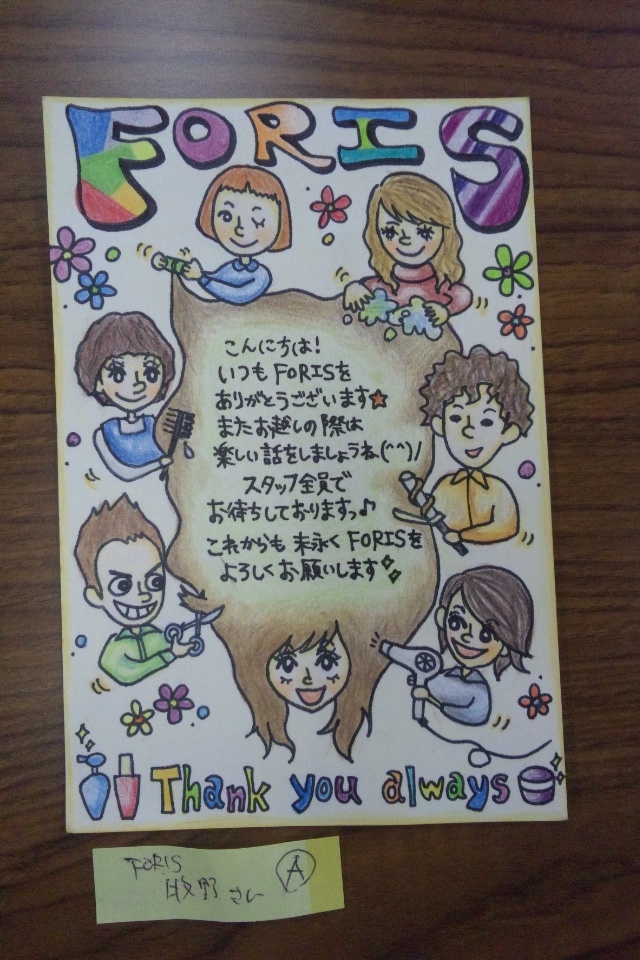 FORIS
こんにちは!
いつも FORISを
ありがとうございます★
またお越しの際は
楽しい話をしましょうね(^^)/
スタッフ全員で
お待ちしておりますっ♪
これからも 末永く FORISを
よろしくお願いします
Thank you always
FORIS
牧野 さん
A